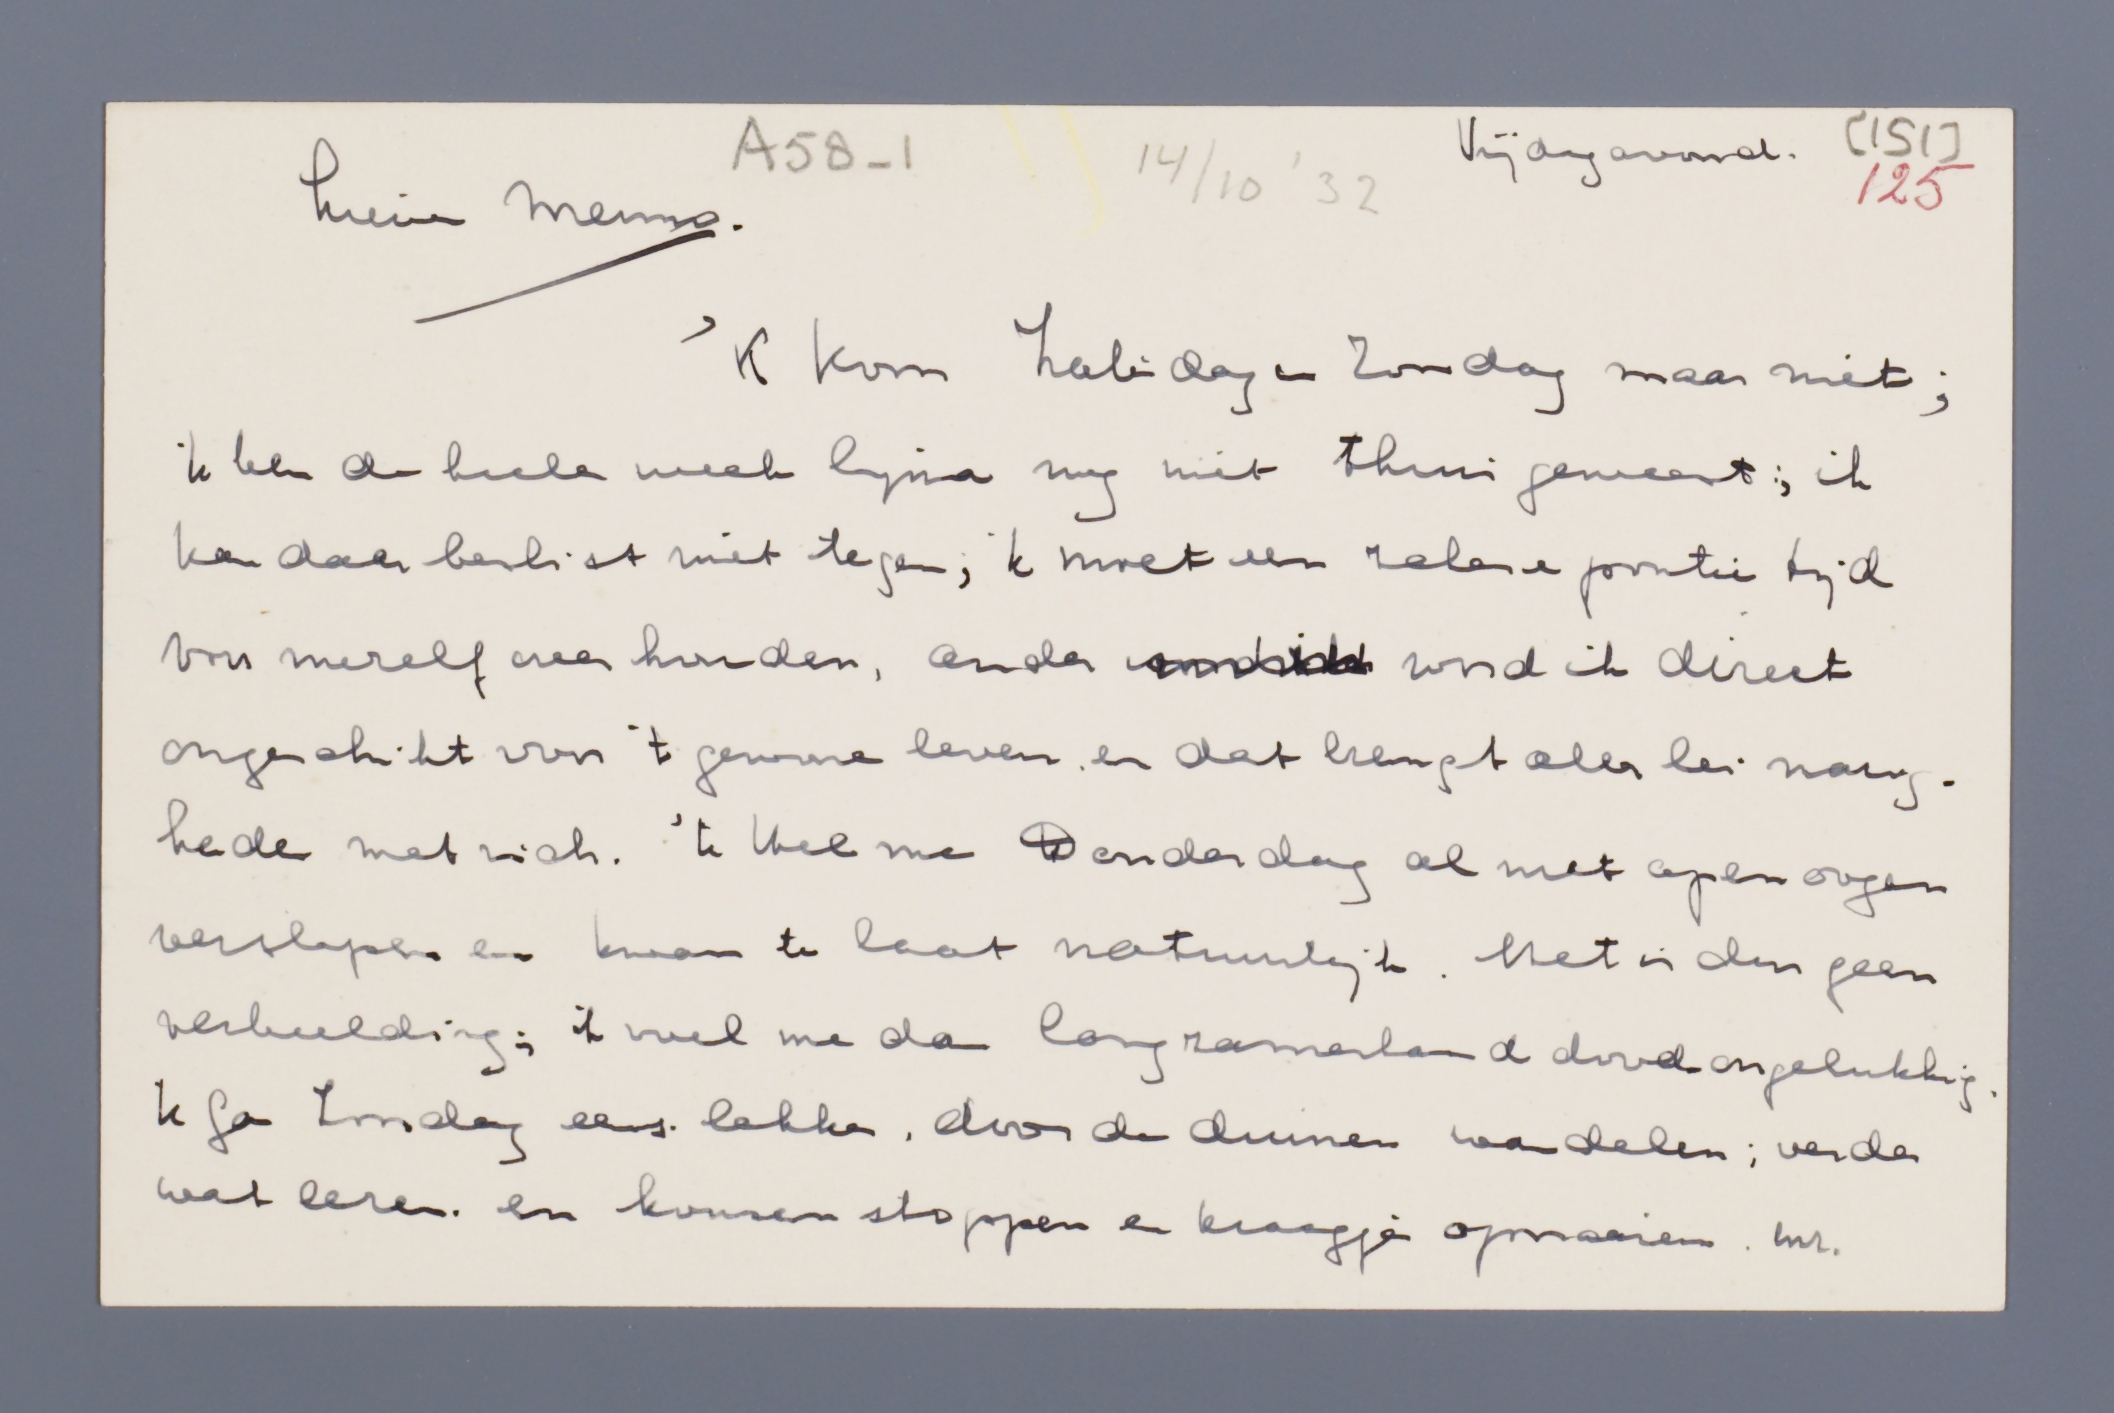 A58-1
14/10 '32
Vrijdagavond.
[151]
125
Lieve Menno.
'K kom Zaterdag en Zondag maar niet;
ik ben de heele week bijna nog niet thuis geweest; ik
kan daar beslist niet tegen; 'k moet een zekere portie tijd
voor mezelf over houden, anders word ik direct
ongeschikt voor 't gewone leven en dat brengt allerlei narig-
heden met zich. 'k Heb me Donderdag al met open oogen
verslapen en kwam te laat natuurlijk. Het is dus geen
verbeelding; ik voel me dan langzamerhand dood-ongelukkig.
'k Ga Zondag eens lekker door de duinen wandelen; verder
wat lezen en kousen stoppen en kraagjes opnaaien.